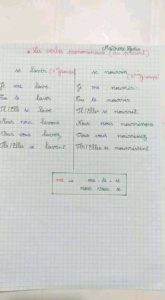 Maîtresse
* Les verbes pronominaux (au présent)
se laver (1er groupe)
Je me lave
Tu te laves
Il/Elle se lave
Nous nous lavons
Vous vous lavez
Ils/Elles se lavent
se nourrir (2ème groupe)
Je me nourris
Tu te nourris
Il/Elle se nourrit
Nous nous nourrissons
Vous vous nourrissez
Ils/Elles se nourrissent
me - te - se
nous vous se